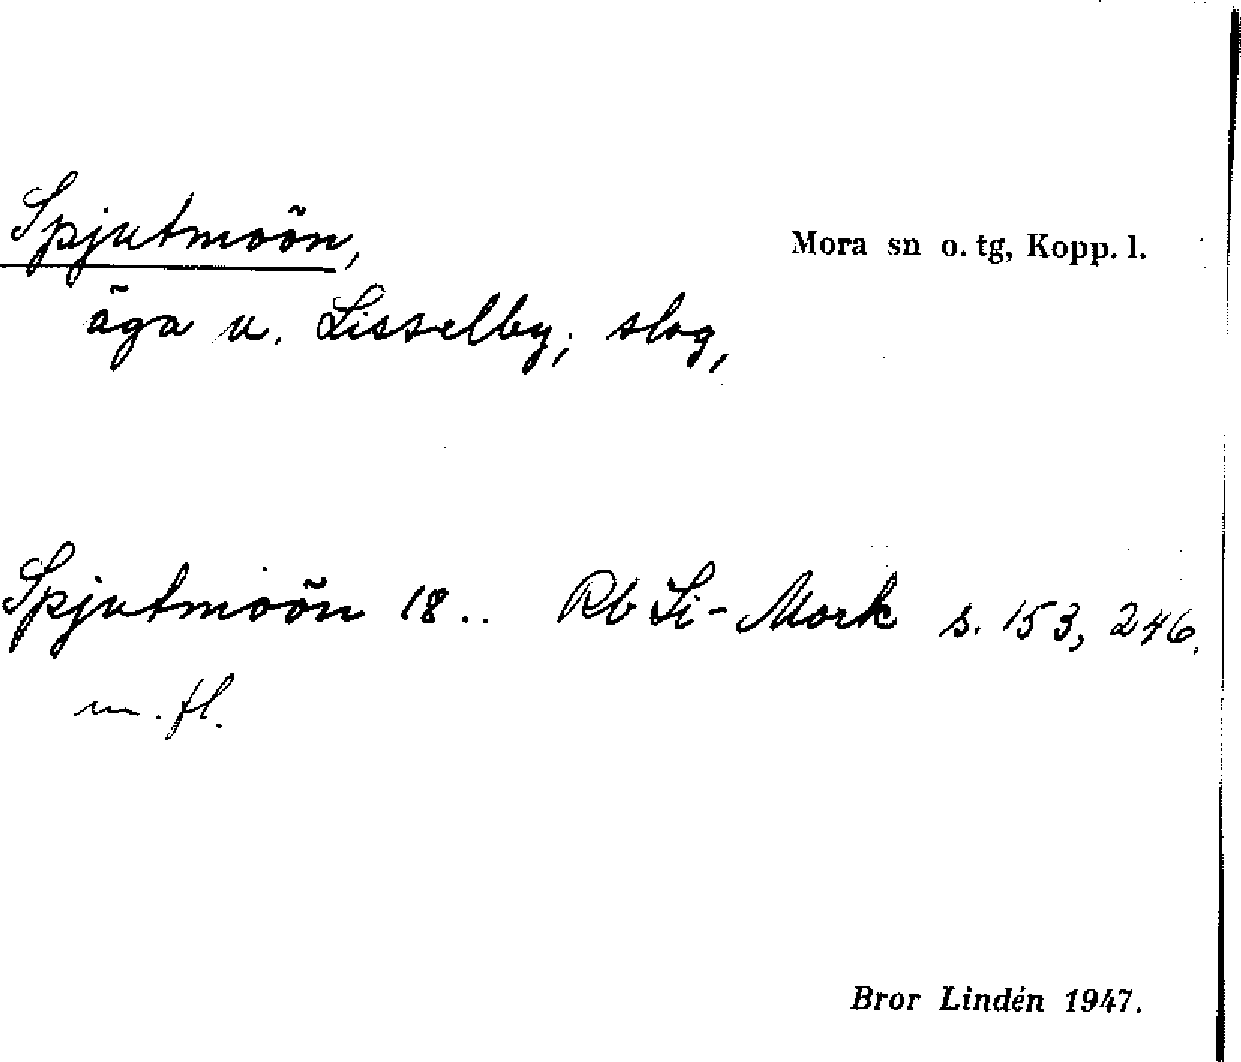 Spjutmoön,
Mora sn o. tg, Kopp. l.
äga u. Lisselby; slog,
Spjutmoön 18.. Rb Li-Mork s. 153, 246.
m. fl.
Bror Lindén 1947.